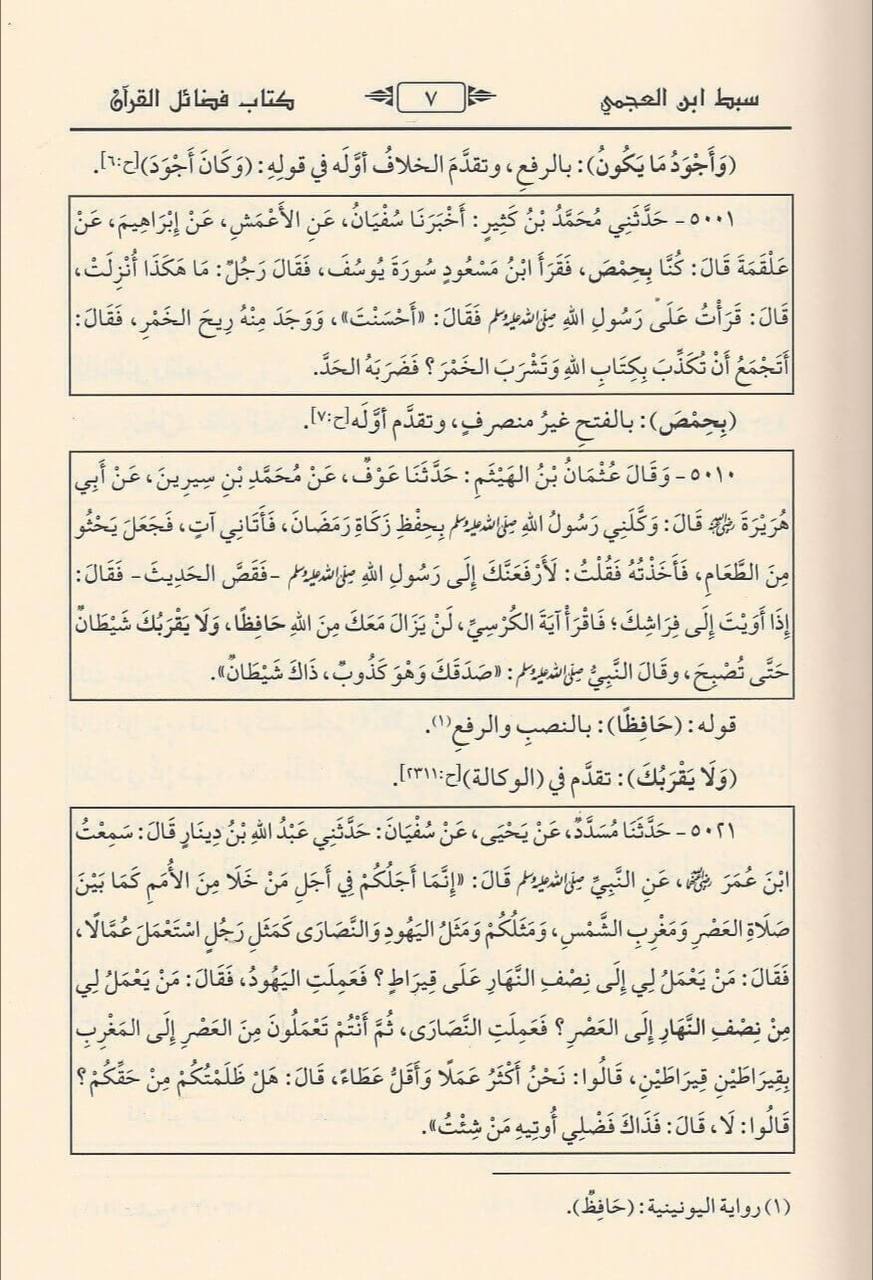 سبط ابن العجمي ٧ كتاب فضائل القرآن
(وَأَجْوَدُ مَا يَكُونُ): بالرفعِ، وتقدَّمَ الخلافُ أوَّلَه في قولِهِ: (وَكَانَ أَجْوَدَ)[ح:٦].
٥٠٠١- حَدَّثَنِي مُحَمَّدُ بْنُ كَثِيرٍ: أَخْبَرَنَا سُفْيَانُ، عَنِ الأَعْمَشِ، عَنْ إِبْرَاهِيمَ، عَنْ
عَلْقَمَةَ قَالَ: كُنَّا بِحِمْصَ، فَقَرَأَ ابْنُ مَسْعُودٍ سُورَةَ يُوسُفَ، فَقَالَ رَجُلٌ: مَا هَكَذَا أُنْزِلَتْ،
قَالَ: قَرَأْتُ عَلَى رَسُولِ اللهِ ﷺ فَقَالَ: «أَحْسَنْتَ»، وَوَجَدَ مِنْهُ رِيحَ الخَمْرِ، فَقَالَ:
أَتَجْمَعُ أَنْ تُكَذِّبَ بِكِتَابِ اللهِ وَتَشْرَبَ الخَمْرَ؟ فَضَرَبَهُ الحَدَّ.
(بِحِمْصَ): بالفتحِ غيرُ منصرفٍ، وتقدَّم أوَّلَه[ح:٧].
٥٠١٠- وَقَالَ عُثْمَانُ بْنُ الهَيْثَمِ: حَدَّثَنَا عَوْفٌ، عَنْ مُحَمَّدِ بْنِ سِيرِينَ، عَنْ أَبِي
هُرَيْرَةَ ﵁ قَالَ: وَكَّلَنِي رَسُولُ اللهِ ﷺ بِحِفْظِ زَكَاةِ رَمَضَانَ، فَأَتَانِي آتٍ، فَجَعَلَ يَحْثُو
مِنَ الطَّعَامِ، فَأَخَذْتُهُ فَقُلْتُ: لَأَرْفَعَنَّكَ إِلَى رَسُولِ اللهِ ﷺ -فَقَصَّ الحَدِيثَ- فَقَالَ:
إِذَا أَوَيْتَ إِلَى فِرَاشِكَ؛ فَاقْرَأْ آيَةَ الكُرْسِيِّ، لَنْ يَزَالَ مَعَكَ مِنَ اللهِ حَافِظًا، وَلَا يَقْرَبُكَ شَيْطَانٌ
حَتَّى تُصْبِحَ، وقَالَ النَّبِيُّ ﷺ: «صَدَقَكَ وَهْوَ كَذُوبٌ، ذَاكَ شَيْطَانٌ».
قوله: (حَافِظًا): بالنصبِ والرفعِ(١).
(وَلَا يَقْرَبُكَ): تقدَّم في (الوكالة)[ح:٢٣١١].
٥٠٢١- حَدَّثَنَا مُسَدَّدٌ، عَنْ يَحْيَى، عَنْ سُفْيَانَ: حَدَّثَنِي عَبْدُ اللهِ بْنُ دِينَارٍ قَالَ: سَمِعْتُ
ابْنَ عُمَرَ ﵄، عَنِ النَّبِيِّ ﷺ قَالَ: «إِنَّمَا أَجَلُكُمْ فِي أَجَلِ مَنْ خَلَا مِنَ الأُمَمِ كَمَا بَيْنَ
صَلَاةِ العَصْرِ وَمَغْرِبِ الشَّمْسِ، وَمَثَلُكُمْ وَمَثَلُ اليَهُودِ وَالنَّصَارَى كَمَثَلِ رَجُلٍ اسْتَعْمَلَ عُمَّالًا،
فَقَالَ: مَنْ يَعْمَلُ لِي إِلَى نِصْفِ النَّهَارِ عَلَى قِيرَاطٍ؟ فَعَمِلَتِ اليَهُودُ، فَقَالَ: مَنْ يَعْمَلُ لِي
مِنْ نِصْفِ النَّهَارِ إِلَى العَصْرِ؟ فَعَمِلَتِ النَّصَارَى، ثُمَّ أَنْتُمْ تَعْمَلُونَ مِنَ العَصْرِ إِلَى المَغْرِبِ
بِقِيرَاطَيْنِ قِيرَاطَيْنِ، قَالُوا: نَحْنُ أَكْثَرُ عَمَلًا وَأَقَلُّ عَطَاءً، قَالَ: هَلْ ظَلَمْتُكُمْ مِنْ حَقِّكُمْ؟
قَالُوا: لَا، قَالَ: فَذَاكَ فَضْلِي أُوتِيهِ مَنْ شِئْتُ».
(١) رواية اليونينية: (حَافِظٌ).